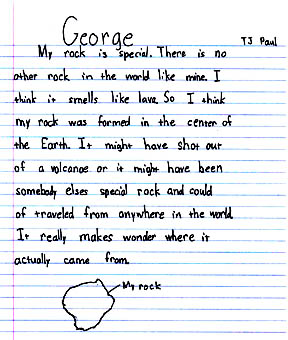 George
TJ Paul
My rock is special. There is no
other rock in the world like mine. I
think it smells like lava. So I think
my rock was formed in the center of
the Earth. It might have shot out
of a volcanoe or it might have been
somebody elses special rock and could
of traveled from anywhere in the world.
It really makes wonder where it
actually came from.
My rock